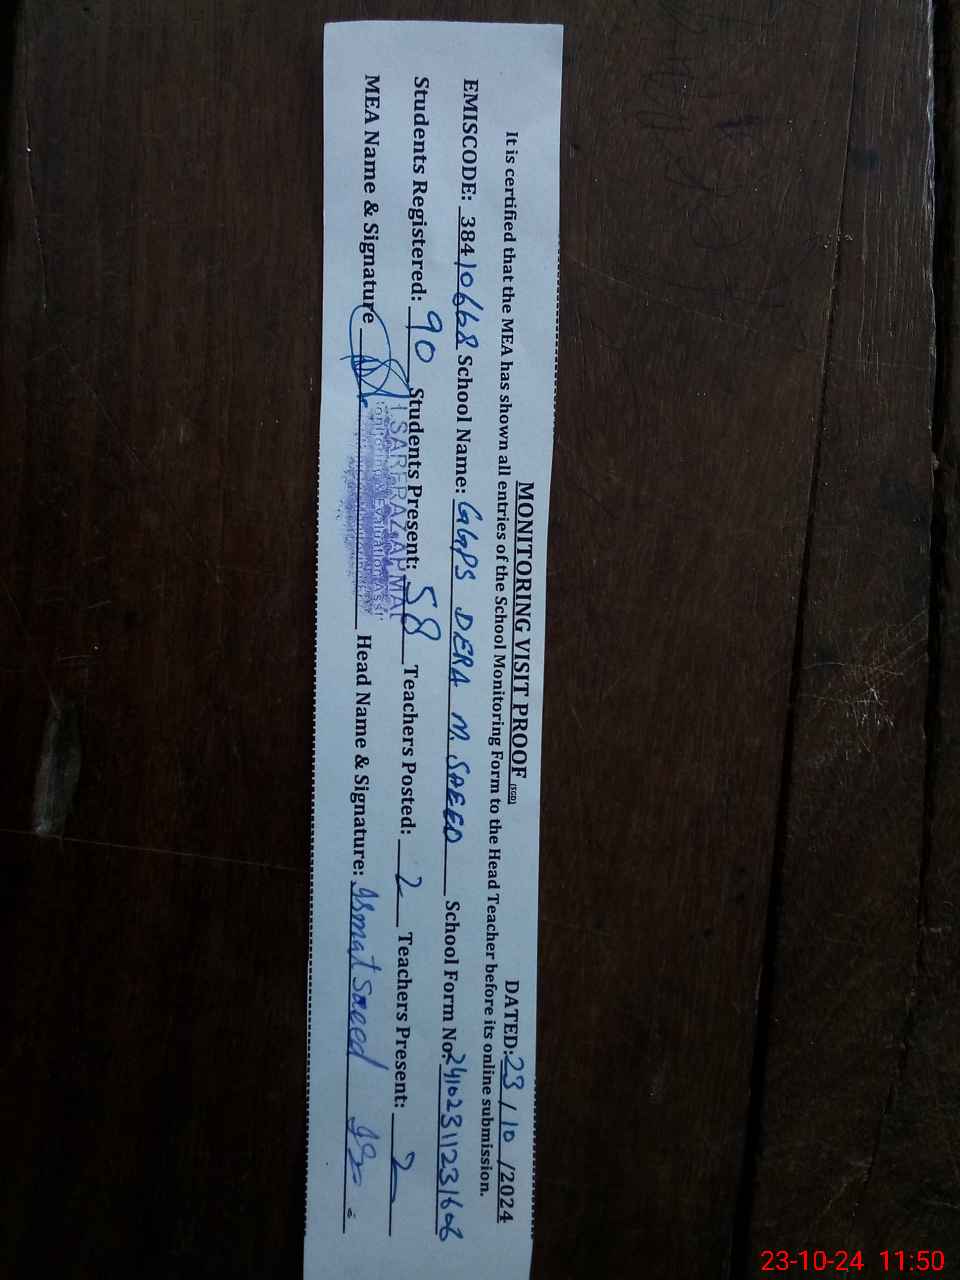 MONITORING VISIT PROOF (SGD)
DATED: 23 / 10 / 2024
It is certified that the MEA has shown all entries of the School Monitoring Form to the Head Teacher before its online submission.
EMISCODE: 38410668 School Name: GGPS DERA M. SAEED School Form No: 24102311231606
Students Registered: 90 Students Present: 58 Teachers Posted: 2 Teachers Present: 2
MEA Name & Signature Head Name & Signature: Ismat Saeed
SARFRAZ AHMA
Monitoring & Evaluation Assi
23-10-24 11:50